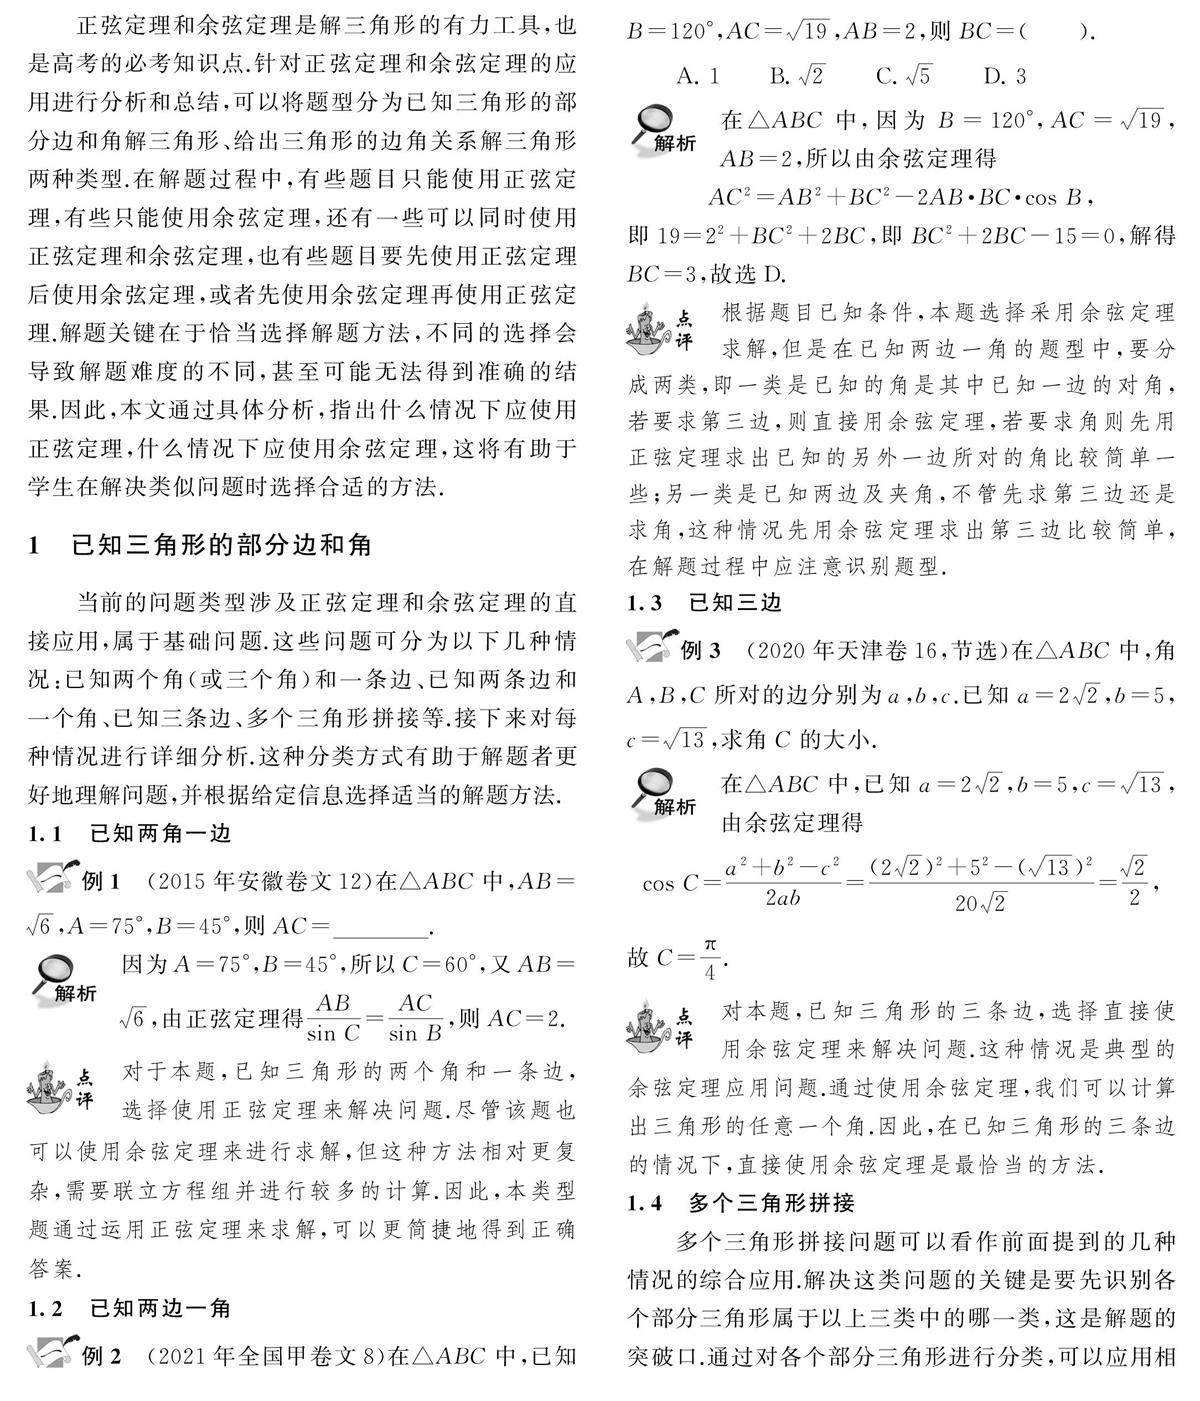 正弦定理和余弦定理是解三角形的有力工具,也
是高考的必考知识点.针对正弦定理和余弦定理的应
用进行分析和总结,可以将题型分为已知三角形的部
分边和角解三角形、给出三角形的边角关系解三角形
两种类型.在解题过程中,有些题目只能使用正弦定
理,有些只能使用余弦定理,还有一些可以同时使用
正弦定理和余弦定理,也有些题目要先使用正弦定理
后使用余弦定理,或者先使用余弦定理再使用正弦定
理.解题关键在于恰当选择解题方法,不同的选择会
导致解题难度的不同,甚至可能无法得到准确的结
果.因此,本文通过具体分析,指出什么情况下应使用
正弦定理,什么情况下应使用余弦定理,这将有助于
学生在解决类似问题时选择合适的方法.
1 已知三角形的部分边和角
当前的问题类型涉及正弦定理和余弦定理的直
接应用,属于基础问题.这些问题可分为以下几种情
况:已知两个角(或三个角)和一条边、已知两条边和
一个角、已知三条边、多个三角形拼接等.接下来对每
种情况进行详细分析.这种分类方式有助于解题者更
好地理解问题,并根据给定信息选择适当的解题方法.
1.1 已知两角一边
例1 (2015年安徽卷文12)在△ABC中,AB=
√6,A=75°,B=45°,则AC=________.
解析 因为A=75°,B=45°,所以C=60°,又AB=
√6,由正弦定理得AB/sin C=AC/sin B,则AC=2.
点评 对于本题,已知三角形的两个角和一条边,
选择使用正弦定理来解决问题.尽管该题也
可以使用余弦定理来进行求解,但这种方法相对更复
杂,需要联立方程组并进行较多的计算.因此,本类型
题通过运用正弦定理来求解,可以更简捷地得到正确
答案.
1.2 已知两边一角
例2 (2021年全国甲卷文8)在△ABC中,已知
B=120°,AC=√19,AB=2,则BC=( ).
A. 1 B. √2 C. √5 D. 3
解析 在△ABC中,因为B=120°,AC=√19,
AB=2,所以由余弦定理得
AC²=AB²+BC²-2AB•BC•cos B,
即19=2²+BC²+2BC,即BC²+2BC-15=0,解得
BC=3,故选D.
点评 根据题目已知条件,本题选择采用余弦定理
求解,但是在已知两边一角的题型中,要分
成两类,即一类是已知的角是其中已知一边的对角,
若要求第三边,则直接用余弦定理,若要求角则先用
正弦定理求出已知的另外一边所对的角比较简单一
些;另一类是已知两边及夹角,不管先求第三边还是
求角,这种情况先用余弦定理求出第三边比较简单,
在解题过程中应注意识别题型.
1.3 已知三边
例3 (2020年天津卷16,节选)在△ABC中,角
A,B,C所对的边分别为a,b,c.已知a=2√2,b=5,
c=√13,求角C的大小.
解析 在△ABC中,已知a=2√2,b=5,c=√13,
由余弦定理得
cos C=(a²+b²-c²)/2ab=((2√2)²+5²-(√13)²)/20√2=√2/2,
故C=π/4.
点评 对本题,已知三角形的三条边,选择直接使
用余弦定理来解决问题.这种情况是典型的
余弦定理应用问题.通过使用余弦定理,我们可以计算
出三角形的任意一个角.因此,在已知三角形的三条边
的情况下,直接使用余弦定理是最恰当的方法.
1.4 多个三角形拼接
多个三角形拼接问题可以看作前面提到的几种
情况的综合应用.解决这类问题的关键是要先识别各
个部分三角形属于以上三类中的哪一类,这是解题的
突破口.通过对各个部分三角形进行分类,可以应用相